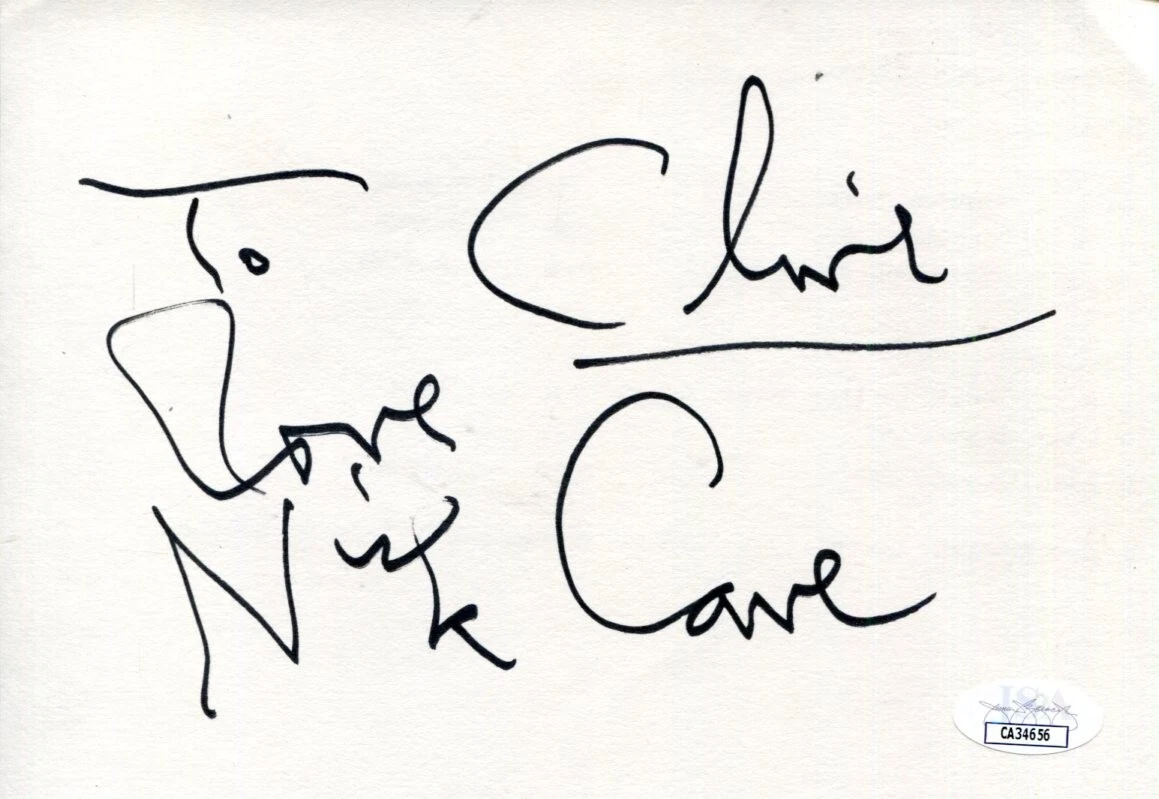 To Chris
Love
Nick Cave
JSA
CA34656